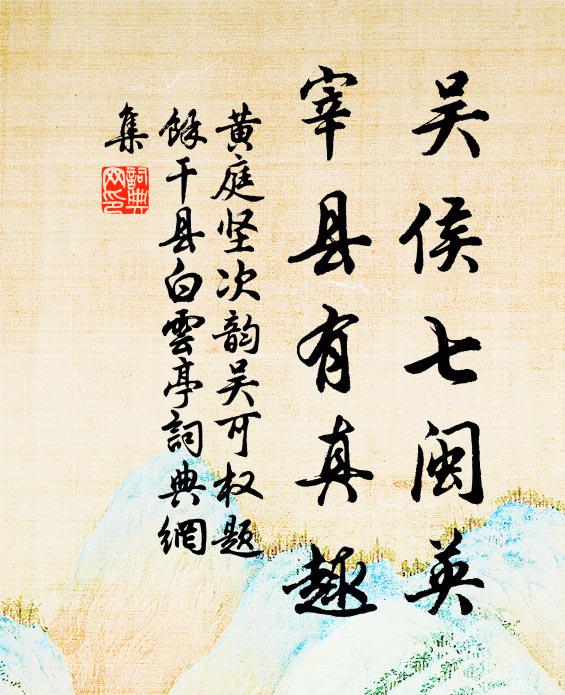 吴侯七闽英
宰县有真趣
黄庭坚次韵吴可权题
馀干县白雲亭詞典網
集
詞典
网印